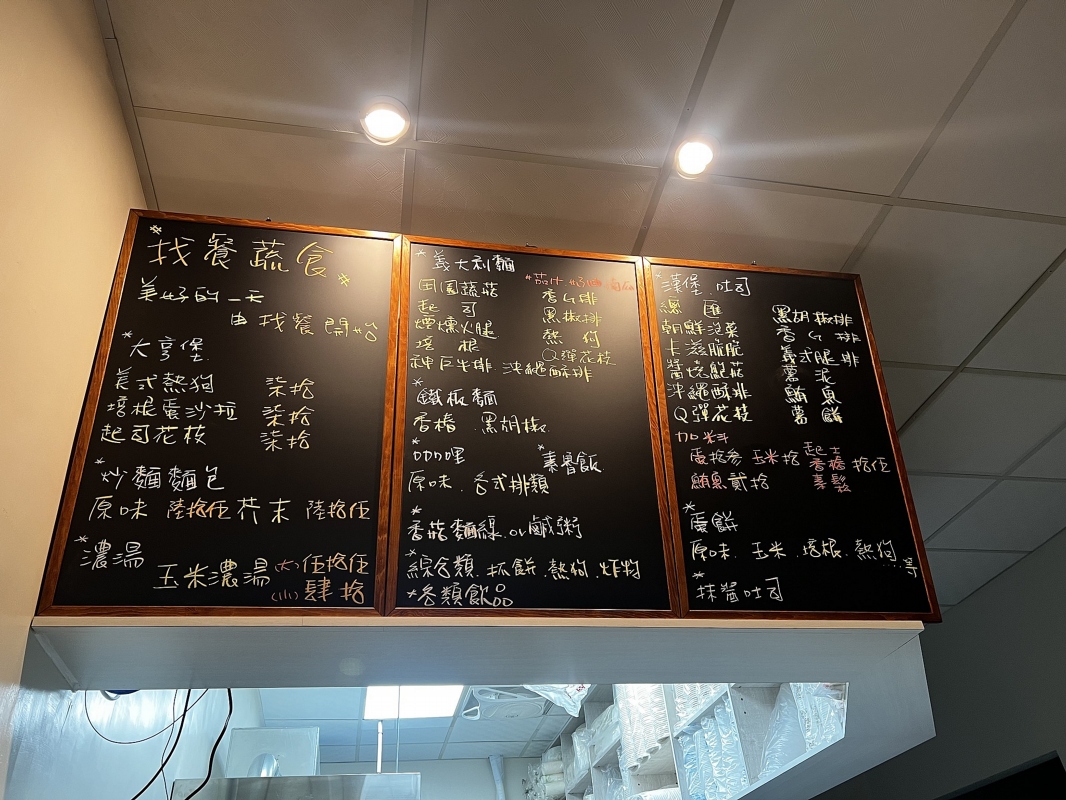 找餐蔬食
美好的一天
由找餐開始
*大亨堡
美式熱狗 柒拾
培根蛋沙拉 柒拾
起司花枝 柒拾
*炒麵麵包
原味 陸拾伍 芥末 陸拾伍
*濃湯
玉米濃湯 (大) 伍拾伍
(小) 肆拾
*義大利麵
*茄汁 奶油 南瓜
田園蔬菇 香G排
起司 黑椒排
煙燻火腿 熱狗
培根 Q彈花枝
神戶牛排 沖繩酥排
*鐵板麵
香椿 黑胡椒
*咖哩 *素魯飯
原味.各式排類
*香菇麵線.or鹹粥
*綜合類.抓餅.熱狗.炸物
*各類飲品
*漢堡.吐司
總匯 黑胡椒排
朝鮮泡菜 香G排
卡滋脆脆 義式腿排
醬燒鮮菇 薯泥
沖繩酥排 鮪魚
Q彈花枝 薯餅
加料
蛋拾參 玉米拾 起士 香椿 素鬆 拾伍
鮪魚貳拾
*蛋餅
原味.玉米.培根.熱狗...等
*抹醬吐司